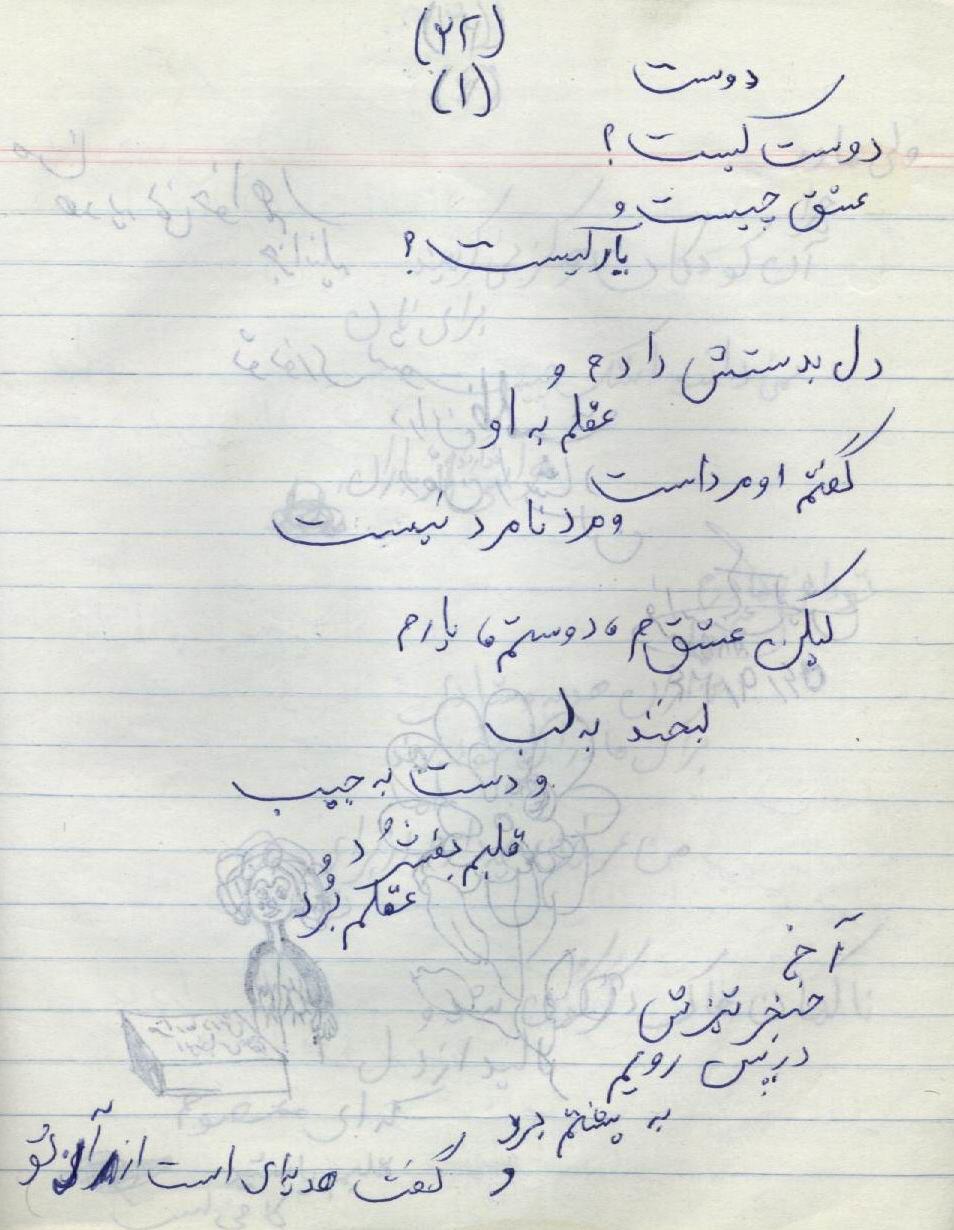 (۲۲)
(۱)
دوست
دوست کیست؟
عشق چیست و
یار کیست؟
دل بدستش دادم و
عقلم به او
گفتم او مرد است
و مرد نامرد نیست
لیکن عشقم، دوستم، یارم
لبخند به لب
و دست به جیب
قلبم بفشُرد و
عقلم بُرد
آخ
خنجر تیزش
در پس رویم
به پشتم برد
و گفت هدیه‌ای است از آن تو